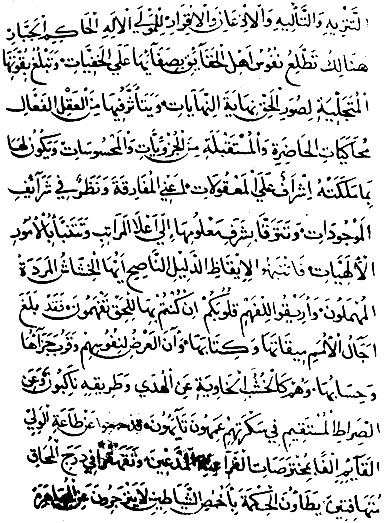 التنزيه والتأليه والاذعان والاقرار للمولى الاله الحاكم الجبار
هنالك تطلع نفوس اهل الحقايق بصفائها على الخفيات وتبلغ بقوتها
المتجلية لصور الحق نهاية النهايات ويتأثر فيها من العقل الفعال
محاكيات الحاضرة والمستقبلة من الجزويات والمحسوسات ويكون لها
بما ملكته اشراف على المعقولات اعني المفارقة ونظر في شرائف
الموجودات وتتوقا بشرف معلومها الى اعلا المراتب وتتنبأ بالامور
الالهيات فانتبهوا لايقاظ الدليل الناصح ايها الخشاش المردة
المهملون واريقوا اللفهم قلوبكم ان كنتم بها للحق تفهمون فقد بلغ
اجال الامم ميقاتها وكتابها وآن العرض لنفوسهم وقرب جزآها
وحسابها وهم كالخشب الخاوية عن الهدي وطريقه ناكبون وعن
الصراط المستقيم في سكرتهم عمهون تايهون قد حجبوا عن طاعة الولي
القآيم الفا بمخترصات الفراعنة المدعين وثقتهم في درج المحاق
متهافتين يطاون الحكمة باخمص الشياطين لا ينزجرون عن المجاهرة